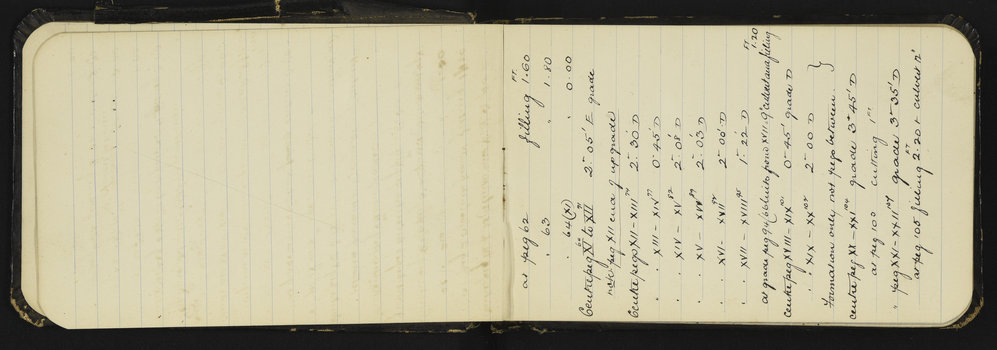 at peg 62 filling FT. 1.60
" 63 " 1.80
" 64 (XI) " 0.00
Centre peg XI 64 to XII 71 2° 05' E grade
note peg XII end of up grade
Centre pegs XII - XIII 74 2° 30' D
" " XIII - XIV 77 0° 45' D
" " XIV - XV 82 2° 08' D
" " XV - XVI 89 2° 03' D
" " XVI - XVII 2° 06' D
" " XVII - XVIII 95 1° 22' D
at grade peg 94 (66 links from XVII 9" culvert and filling FT 1.20
Centre peg XVIII - XIX 101 0° 45' grade D
" " XIX - XX 102 2° 00' D }
Formation only not pegs between
centre peg XX - XXI 104 grade 3° 45' D
at peg 100 cutting 1 FT.
" peg XXI - XXII 107 grade 3° 35' D
at peg 105 filling FT 2.20 + culvert 12"